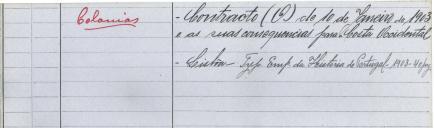 Colonias
- Contracto (O) de 10 de Janeiro de 1903
e as suas consequencias para Costa Occidental
- Lisboa - Typ. Emp. da Historia de Portugal - 1903 - 40 pag